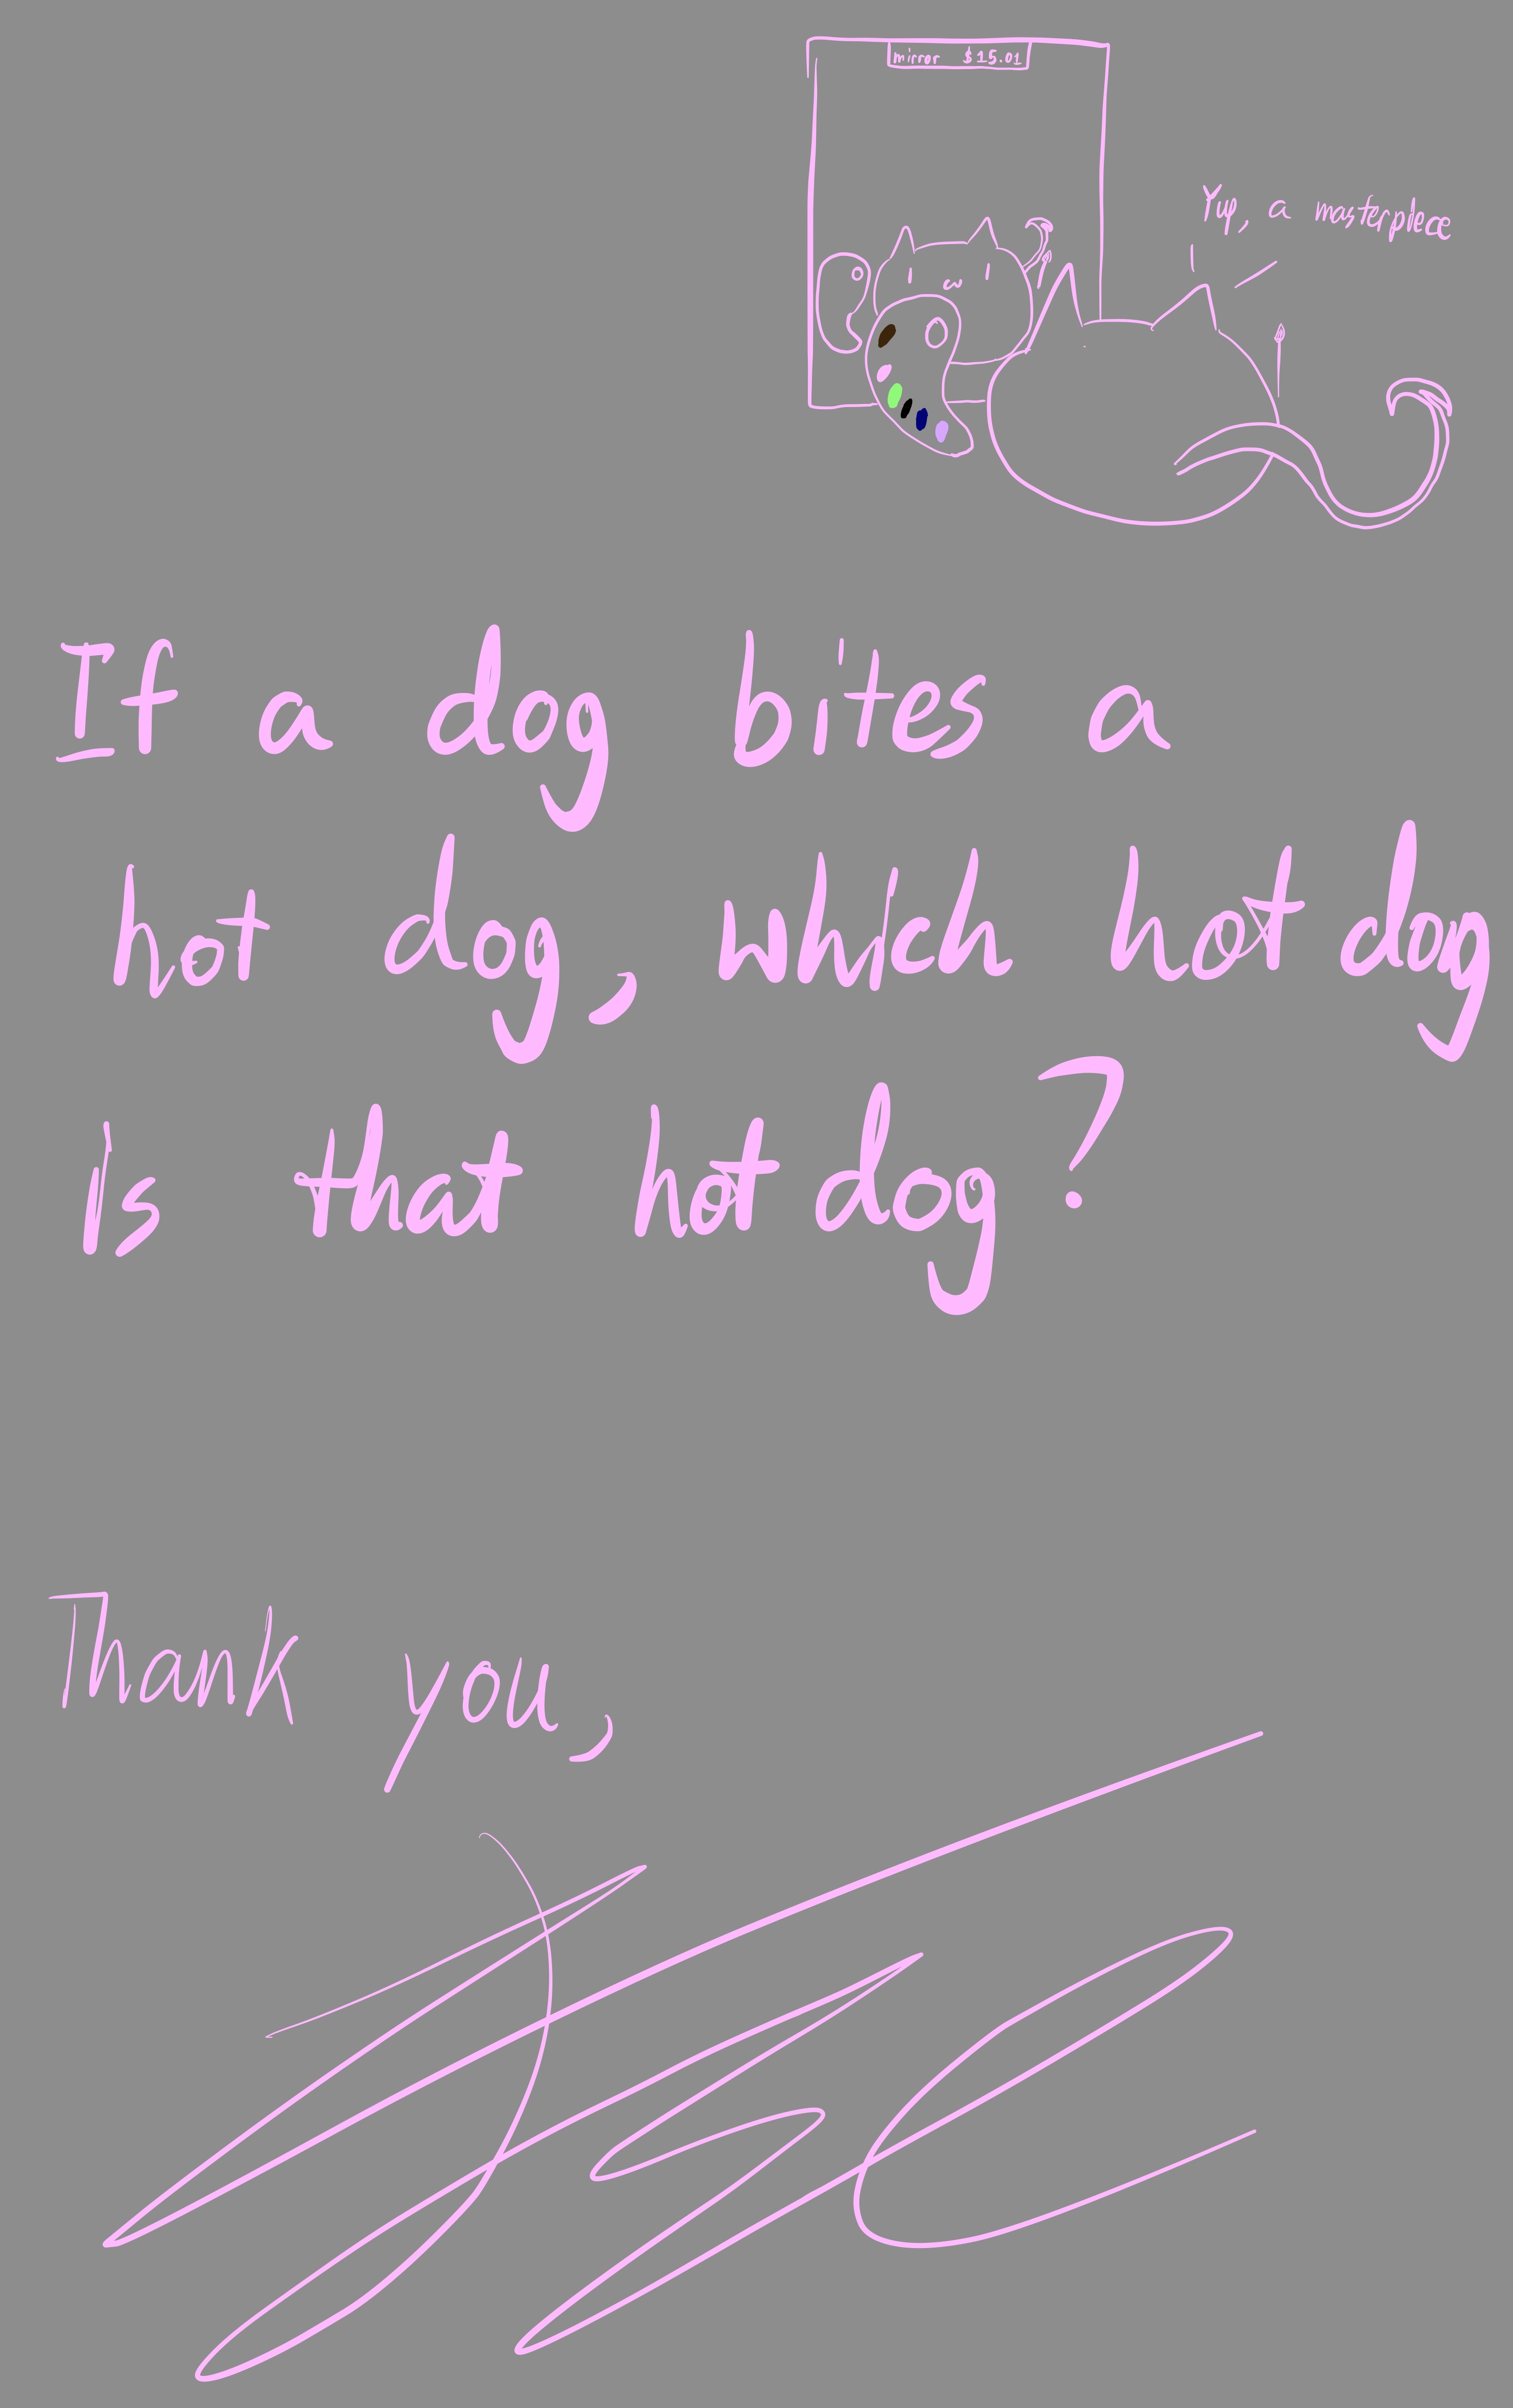 mirror $15.01
Yup, a masterpiece
If a dog bites a
hot dog, which hot dog
Is that hot dog?
Thank you,